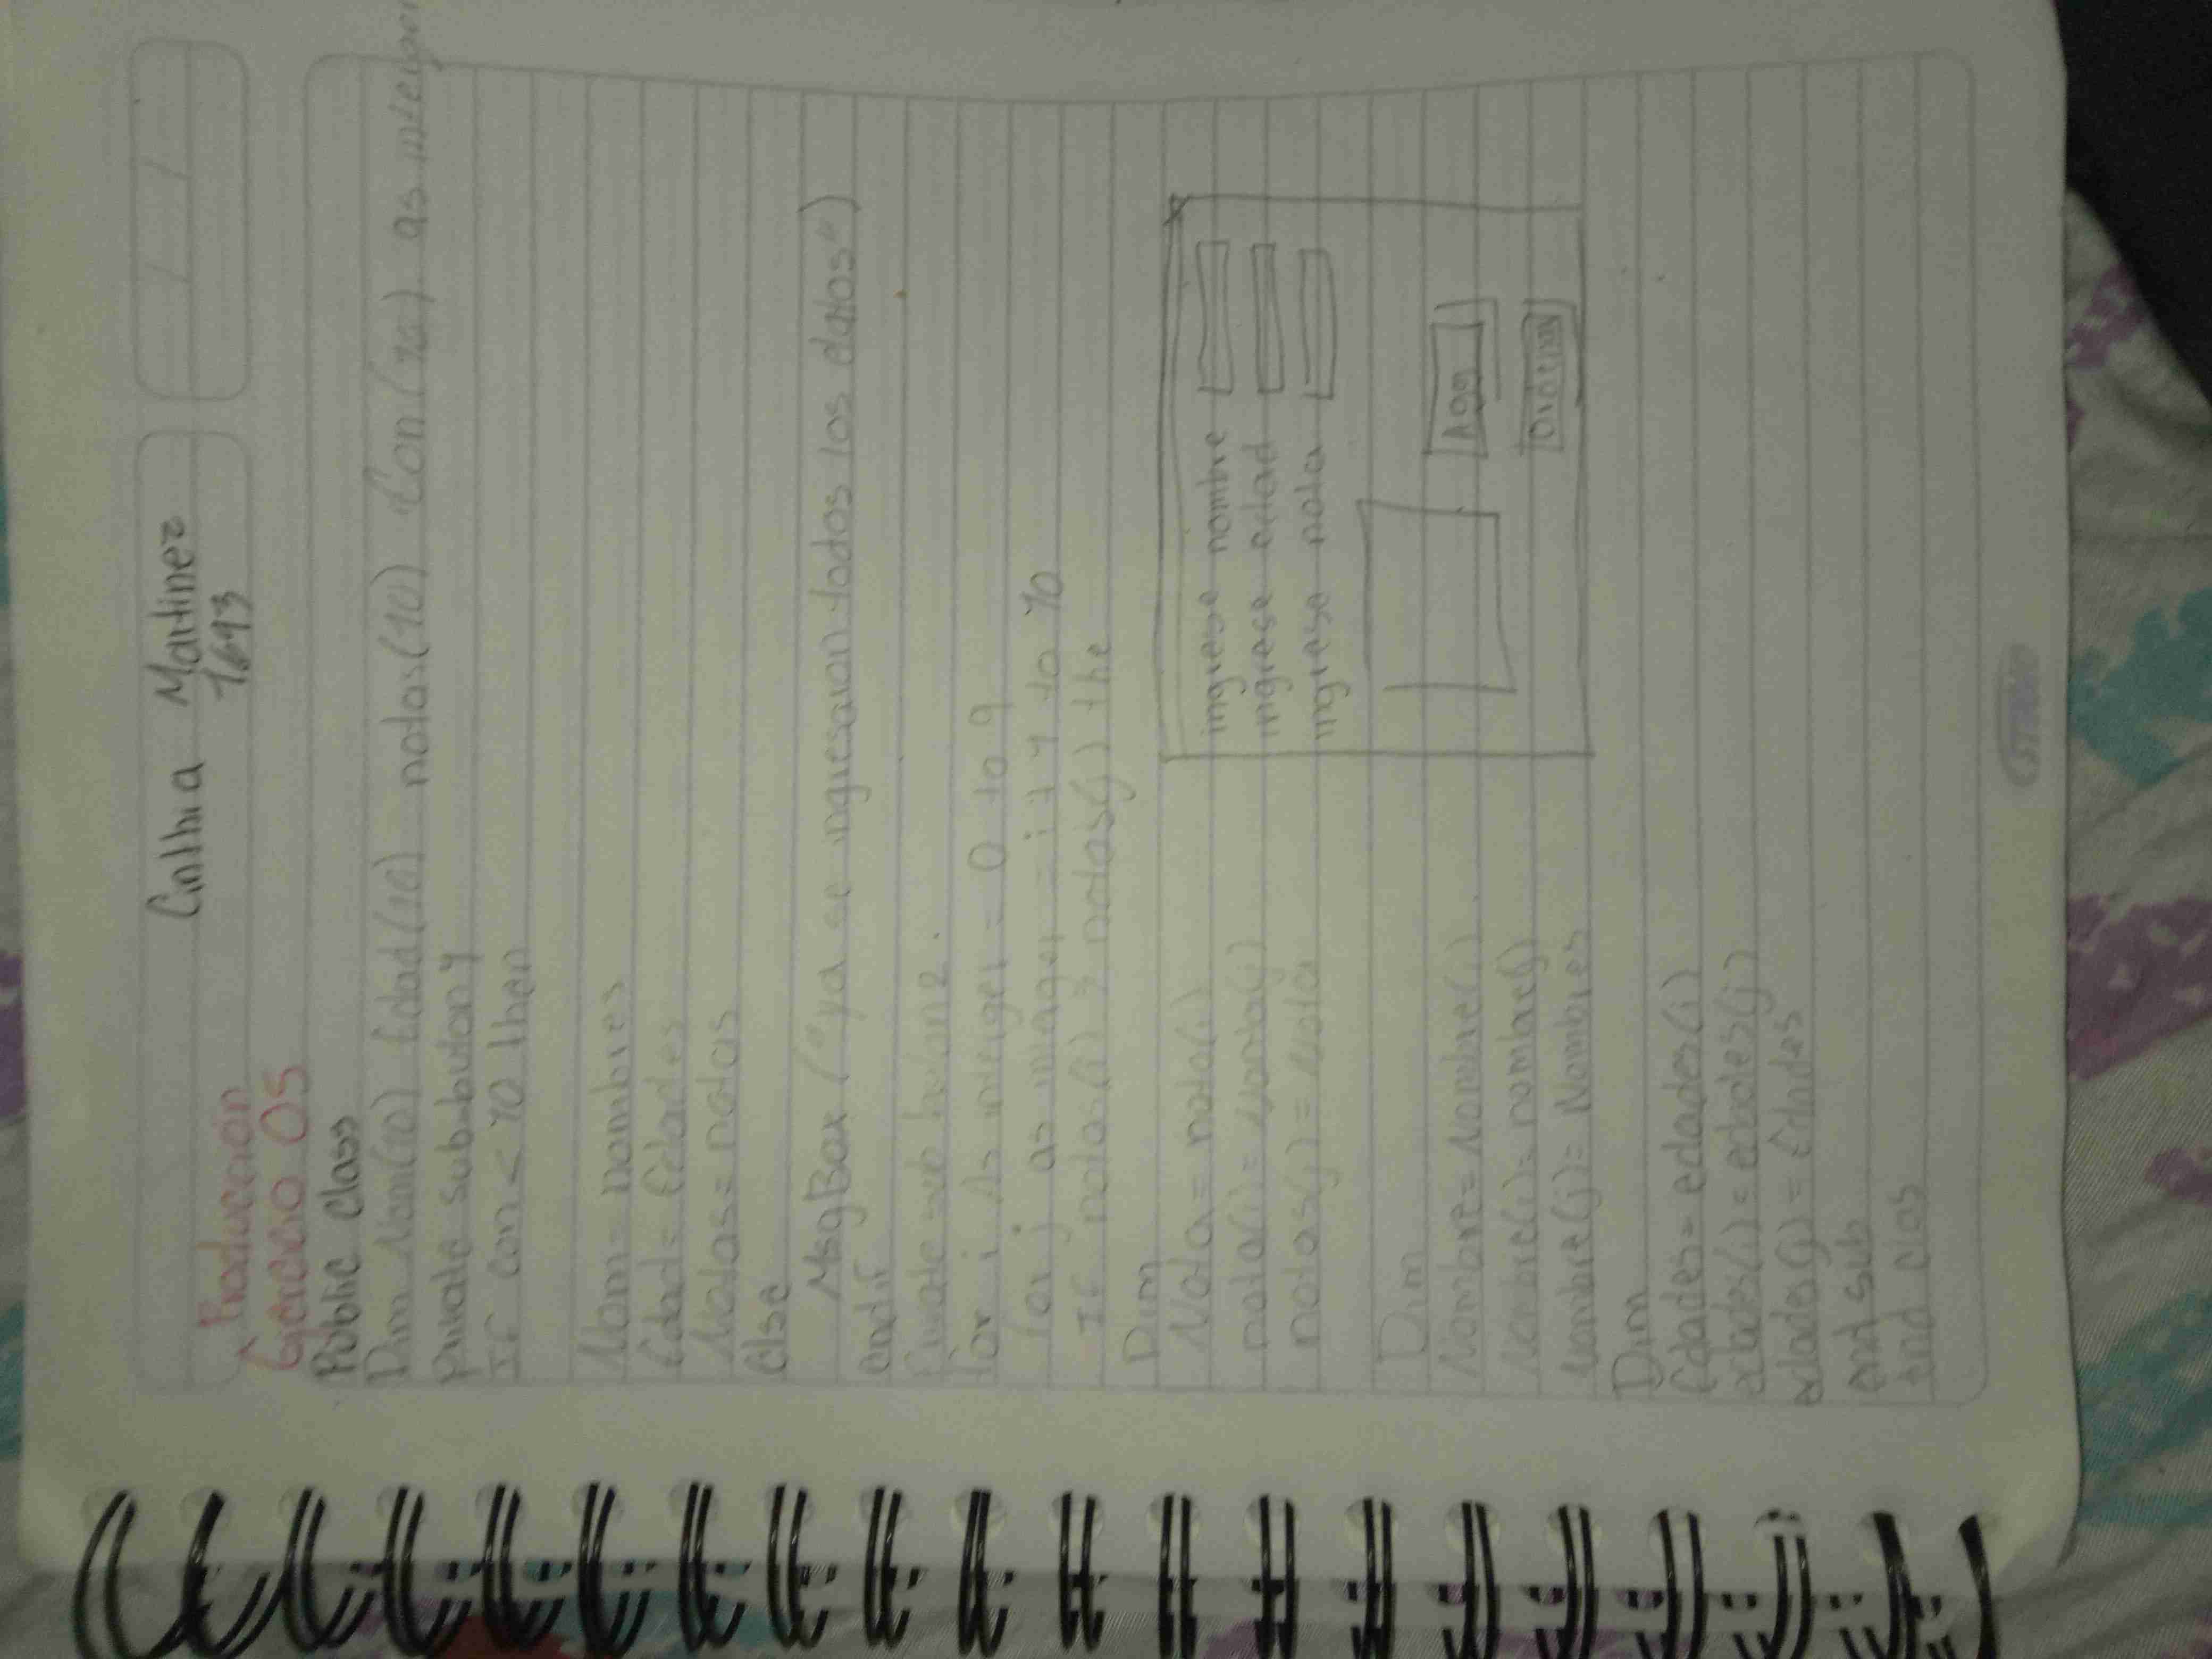 Cinthia Martinez
1693
Producción
Ejercicio 05
Public class
Dim Nom(10) Edad(10) notas(10) Con(10) as integer
Private sub button1
If con < 10 then
Nom = nombres
Edad = Edades
Notas = notas
else
MsgBox ("ya se ingresaron todos los datos")
endif
Private sub button2.
For i As integer = 0 to 9
for j as integer = i + 1 to 10
If notas(i) > notas(j) the
Dim
Nota = nota(i)
nota(i) = Nota(j)
notas(j) = Nota
Dim
Nombre = Nombre(i)
Nombre(i) = nombre(j)
Nombre(j) = Nombres
Dim
Edades = edades(i)
edades(i) = edades(j)
edades(j) = Edades
end sub
end clas
ingrese nombre
ingrese edad
ingrese nota
Agg
Ordenar